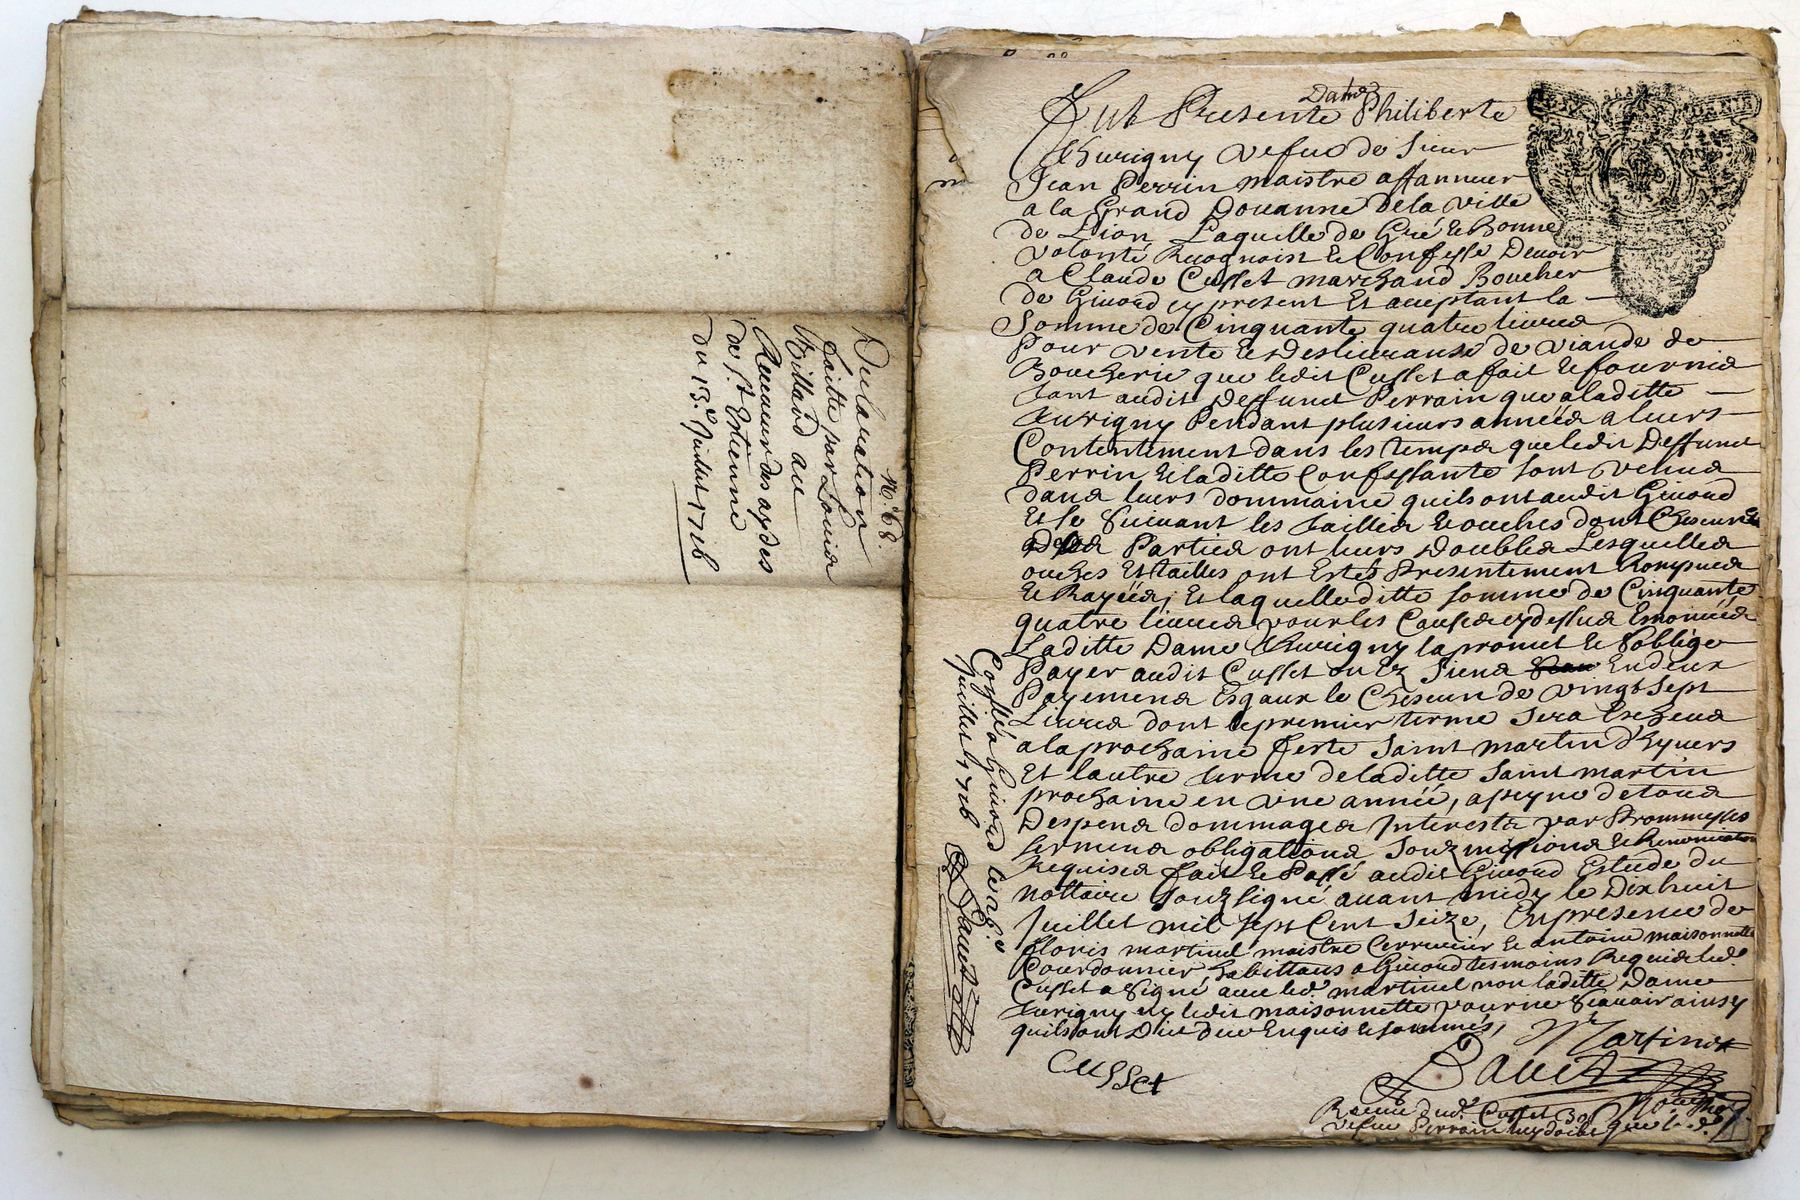 No. 68.
Declaration
faitte par Louis
Millaud au
Receueur des aydes
de St. Estienne
du 13e. Juillet 1716
Dame
Fut Presente Philiberte
Thurigny vefue de Sieur
Jean Perrin maistre affanneur
a la Grand Douanne de la ville
de Lion, Laquelle de Gré et Bonne
volonté Recognoist et Confesse Deuoir
a Claude Cusset marchand Boucher
de Giuord cy present Et acceptant la
Somme de Cinquante quatre liures
Pour vente et Desliuranse de viande de
Boucherie que ledit Cusset a fait et fournis
tant audit Deffunct Perrain que a laditte
Thurigny Pendant plusieurs années a leurs
Contentement dans les temps que ledit Deffunct
Perrin et laditte Confessante sont venus
dans leurs dommaine quils ont audit Giuord
Et se suiuant les tailles et ouches dont Chescunes
des Parties ont leurs Doubles Lesquelles
ouches Et tailles ont Estés Presentement Rompues
et Rayéés, Et laquelle ditte somme de Cinquante
quatre liures pour les Causes cy dessus Enoncéés
Laditte Dame Thurigny la promet et s'oblige
Payer audit Cusset ou Ez Siens En deux
Payemens Esgaux et Chescun de vingt sept
Liures dont le premier terme sera Escheus
a la prochaine feste Saint martin d'hyuers
Et lautre terme de laditte Saint martin
prochaine en vne année, a peyne de tous
Despens dommages Interests par Prommesses
sermens obligations souzmissions et Renonciations
Requises fait et Passé audit Giuord Estude du
nottaire souzsigné auant midy le Dix huit
Juillet mil sept Cent Seize, En presence de
floris martinet maistre Cerrurier et antoine maisonnette
Courdonnier habittans a Giuord tesmoins Requis led.
Cusset a signé auec led. martinet non laditte Dame
Thurigny ny ledit maisonnette pour ne scauoir ainsy
quils ont Dit de ce Enquis et sommés,
Martinet
Cusset
Receu dud. Cusset
vefue Perrain
Conllé a Giuord le 28e.
Juillet 1716